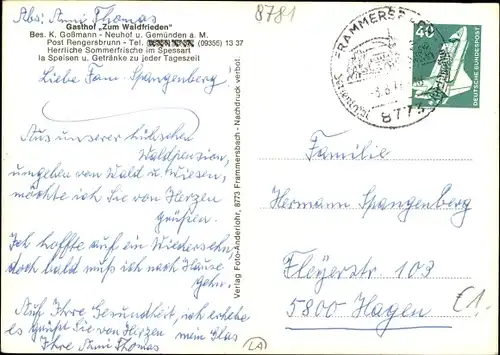 Abs: Anni Thomas
8781
Gasthof „Zum Waldfrieden"
Bes. K. Goßmann - Neuhof u. Gemünden a. M.
Post Rengersbrunn - Tel. (09355) 13 37
Herrliche Sommerfrische im Spessart
Ia Speisen u. Getränke zu jeder Tageszeit
Liebe Fam. Spangenberg
Aus unserer hübschen
Waldpension,
umgeben von Wald u. Wiesen,
möchte ich Sie von Herzen
grüßen.
Ich hoffte auf ein Wiedersehn,
doch bald muß ich nach Hause
gehn.
Auf Ihre Gesundheit, ich erhebe
es grüßt Sie von Herzen mein Glas
Ihre Anni Thomas
Verlag Foto-Anderlohr, 8773 Frammersbach - Nachdruck verbot.
FRAMMERSBACH
8773
40
DEUTSCHE BUNDESPOST
Familie
Hermann Spangenberg
Fleyerstr. 103
5800 Hagen
€1.
LA